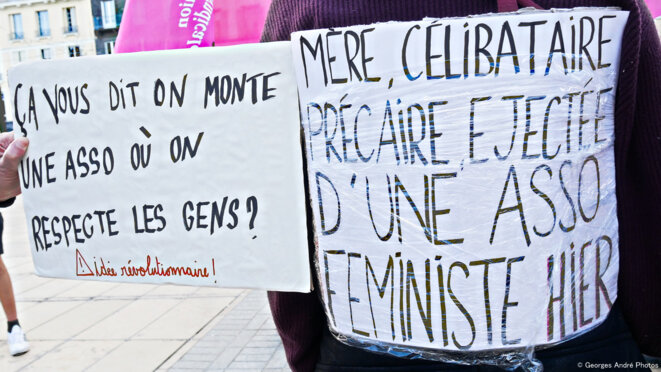 nion
syndicale
ÇA VOUS DIT ON MONTE
UNE ASSO OÙ ON
RESPECTE LES GENS?
⚠ idée révolutionnaire!
MÈRE, CÉLIBATAIRE
PRÉCAIRE, EJECTÉE
D'UNE ASSO
FEMINISTE HIER
© Georges André Photos